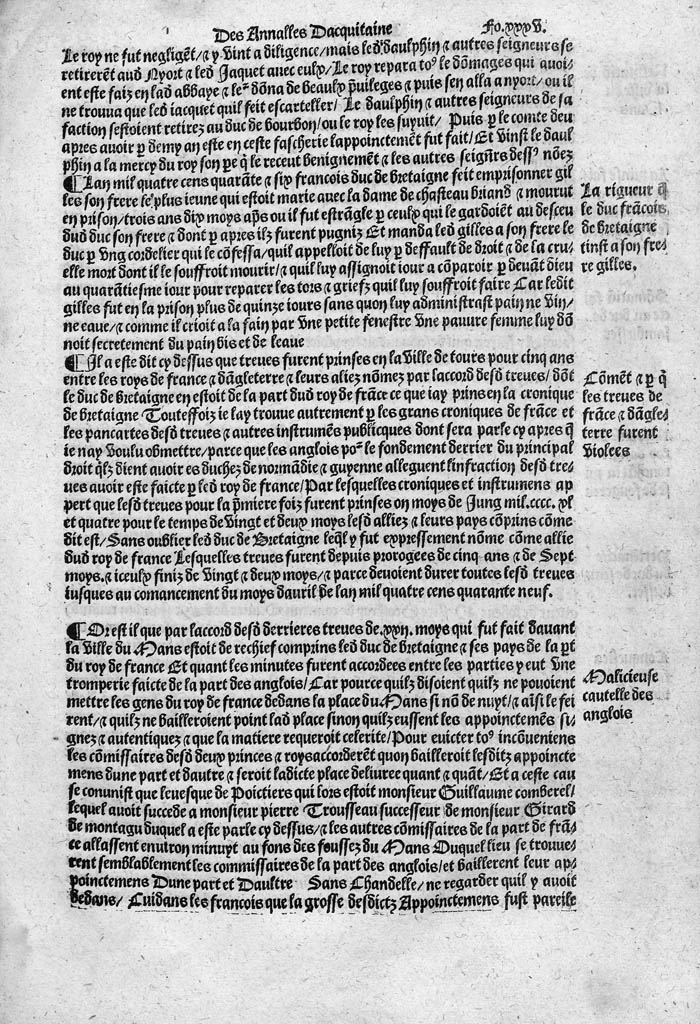 Des Annalles Dacquitaine
Fo.xxxv.
Le roy ne fut negligēt/⁊ y vint a diligence/mais led̄ daulphin ⁊ autres seigneurs se
retirerēt aud̄ Nyort ⁊ led̄ Jaquet auec eulx/Le roy repara toꝰ le dōmages qui auoi-
ent este faiz en lad̄ abbaye ⁊ le᷑ dōna de beaulx p̄uileges ⁊ puis sen alla a nyort/ ou il
ne trouua que led̄ iacquet quil feit escarteller/ Le daulphin ⁊ autres seigneurs de sa
faction sestoient retirez au duc de bourbon/ou le roy les suyuit/ Puis ꝑ le comte deu
apres auoir ꝑ demy an este en ceste fascherie lappoinctemēt fut fait/ Et vinst le daul
phin a la mercy du roy son ꝑe q̄ le receut benignemēt ⁊ les autres seign̄rs dessꝰ nōez
¶Lan mil quatre cens quarāte ⁊ six francois duc de bretaigne feit emprisonner gil
les son frere le plus ieune qui estoit marie auec la dame de chasteau briand ⁊ mourut
en prison/trois ans dix moys ap̄s ou il fut estrāgle ꝑ ceulx qui le gardoiēt au desceu
dud̄ duc son frere ⁊ dont ꝑ apres ilz furent pugniz Et manda led̄ gilles a son frere le
duc ꝑ vng cordelier qui le cōfessa/quil appelloit de luy ꝑ deffault de droit ⁊ de la cru-
elle mort dont il le souffroit mourir/⁊ quil luy assignoit iour a cōparoir ꝑ deuāt dieu
au quarātiesme iour pour reparer les tors ⁊ griefz quil luy souffroit faire Car ledit
gilles fut en la prison plus de quinze iours sans quon luy administrast pain ne vin/
ne eaue/⁊ comme il crioit a la fain par vne petite fenestre vne pauure femme luy dō
noit secretement du pain bis et de leaue
La rigueur q̄
le duc frācois
de bretaigne
tinst a son fre-
re gilles.
¶Jl a este dit cy dessus que treues furent prinses en la ville de tours pour cinq ans
entre les roys de france ⁊ dāgleterre ⁊ leurs aliez nōmez par laccord desd̄ treues/ dōt
le duc de bretaigne en estoit de la part dud̄ roy de frāce ce que iay prins en la cronique
de bretaigne Touteffoiz ie lay trouue autrement ꝑ les grans croniques de frāce et
les pancartes desd̄ treues ⁊ autres instrumēs publicques dont sera parle cy apres q̄
ie nay voulu obmettre/parce que les anglois po᷑ le fondement derrier du principal
droit q̄lz dient auoir es duchez de normādie ⁊ guyenne alleguent linfraction desd̄ tre-
ues auoir este faicte ꝑ led̄ roy de france/Par lesquelles croniques et instrumens ap
pert que lesd̄ treues pour la p̄miere foiz furent prinses on moys de Jung mil.cccc. xl
et quatre pour le temps de vingt et deux moys lesd̄ alliez ⁊ leurs pays cōprins cōme
dit est/Sans oublier led̄ duc de Bretaigne leq̄l y fut expressement nōme cōme allie
dud̄ roy de france Lesquelles treues furent depuis prorogees de cinq ans ⁊ de Sept
moys.⁊ iceulx finiz de vingt ⁊ deux moys/⁊ parce deuoient durer toutes lesd̄ treues
iusques au comancement du moys dauril de lan mil quatre cens quarante neuf.
Cōmēt ⁊ ꝑ q̄
les treues de
frāce ⁊ dāgle-
terre furent
violees
¶Or est il que par laccord desd̄ derrieres treues de.xxii. moys qui fut fait dauant
la ville du Mans estoit de rechief comprins led̄ duc de bretaigne ⁊ ses pays de la ꝑt
du roy de france Et quant les minutes furent accordees entre les parties y eut vne
tromperie faicte de la part des anglois/ Car pource quilz disoient quilz ne pouoient
mettre les gens du roy de france dedans la place du Mans si nō de nuyt/⁊ aīsi le fei
rent/⁊ quilz ne bailleroient point lad̄ place sinon quilz eussent les appoinctemēs si-
gnez ⁊ autentiquez ⁊ que la matiere requeroit celerite/Pour euicter toꝰ incōueniens
les cōmissaires desd̄ deux princes ⁊ roys accorderēt quon bailleroit lesditz appoincte
mens dune part et dautre ⁊ seroit ladicte place deliuree quant ⁊ quāt/ Et a ceste cau
se conuinst que leuesque de Poictiers qui lors estoit monsieur Guillaume comberel/
lequel auoit succede a monsieur pierre Trousseau successeur de monsieur Girard
de montagu duquel a este parle cy dessus/⁊ les autres cōmissaires de la part de frā-
ce allassent enuiron minuyt au fons des foussez du Mans Ouquel lieu se trouue-
rent semblablement les commissaires de la part des anglois/et baillerent leur ap-
poinctemens Dune part et Daultre Sans Chandelle/ ne regarder quil y auoit
dedans/ Cuidans les francois que la grosse desdictz Appoinctemens fust pareille
Malicieuse
cautelle des
anglois